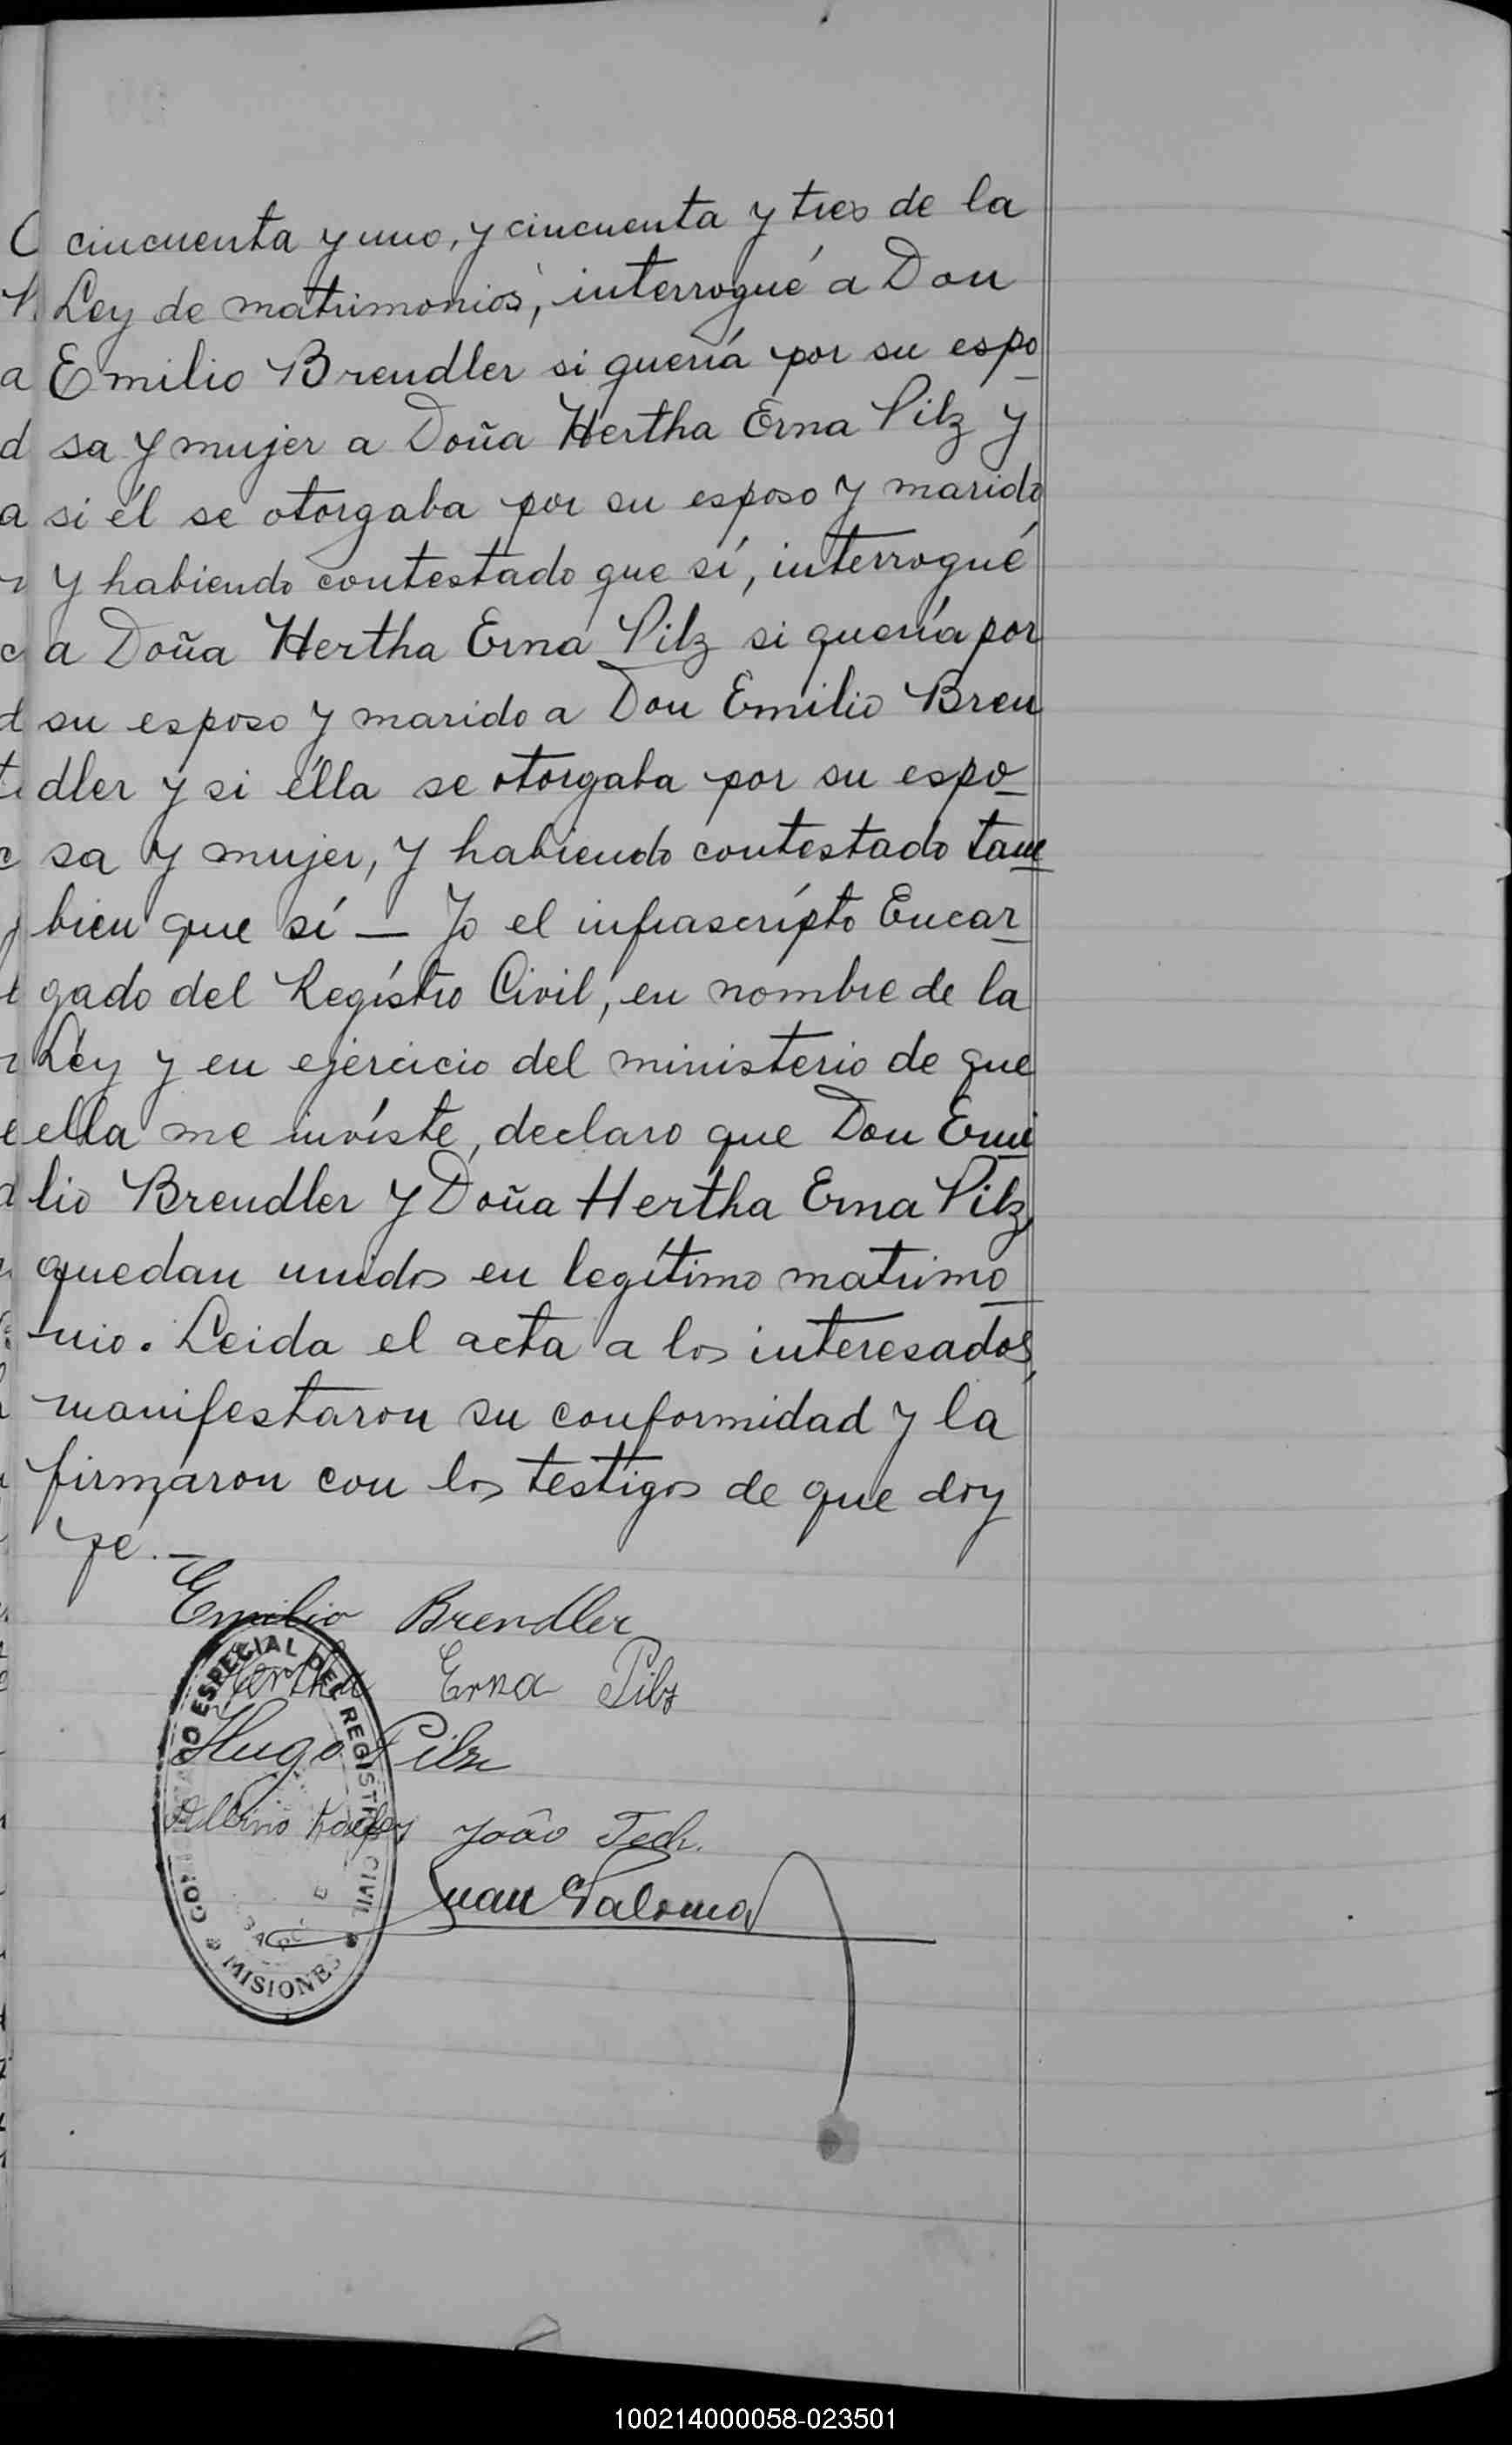 cincuenta y uno, y cincuenta y tres de la
Ley de matrimonios, interrogué a Don
Emilio Brendler si quería por su espo
sa y mujer a Doña Hertha Erna Pilz y
si él se otorgaba por su esposo y marido
y habiendo contestado que sí, interrogué
a Doña Hertha Erna Pilz si quería por
su esposo y marido a Don Emilio Bren
dler y si élla se otorgaba por su espo
sa y mujer, y habiendo contestado tam
bien que sí — Yo el infrascrípto Encar
gado del Regístro Civil, en nombre de la
Ley y en ejercicio del ministerio de que
ella me invíste, declaro que Don Emi
lio Brendler y Doña Hertha Erna Pilz,
quedan unidos en legítimo matrimo
nio. Leida el acta a los interesados,
manifestaron su conformidad y la
firmaron con los testigos de que doy
fé. —
Emilio Brendler
Hertha Erna Pilz
Hugo Pilz
Albino João
Juan Palomar
ESPECIAL DEL REGISTRO CIVIL
MISIONES
100214000058-023501